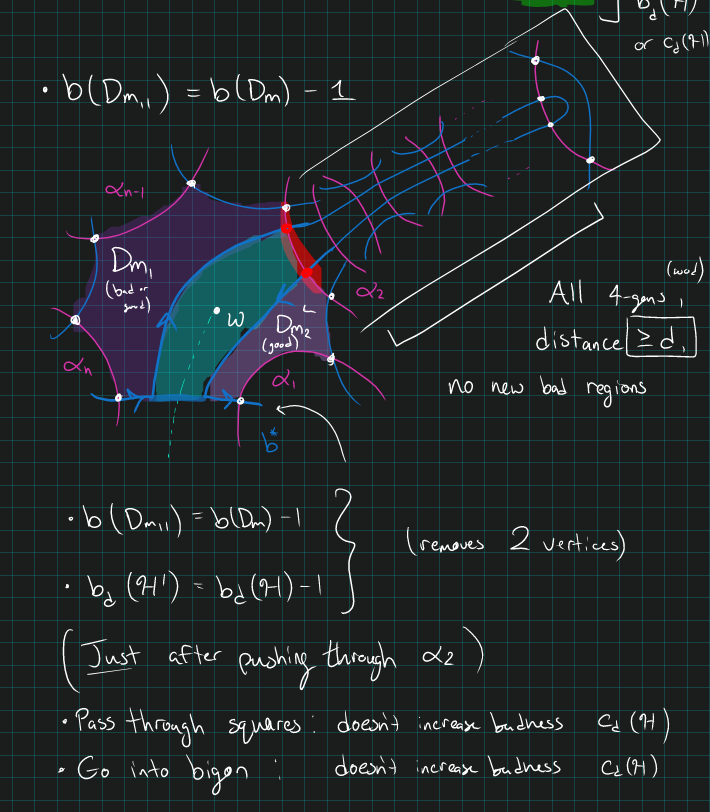 b_d(H)
or c_d(H)
• b(D_{m,1}) = b(D_m) - 1
α_{n-1}
D_{m_1}
(bad or
good)
α_2
(wod)
All 4-gons,
w
D_{m_2}
(good)
distance ≥ d,
α_n
α_1
no new bad regions
b*
• b(D_{m,1}) = b(D_m) - 1
(removes 2 vertices)
• b_d(H') = b_d(H) - 1
(Just after pushing through α_2)
• Pass through squares: doesn't increase badness c_d(H)
• Go into bigon: doesn't increase badness c_d(H)